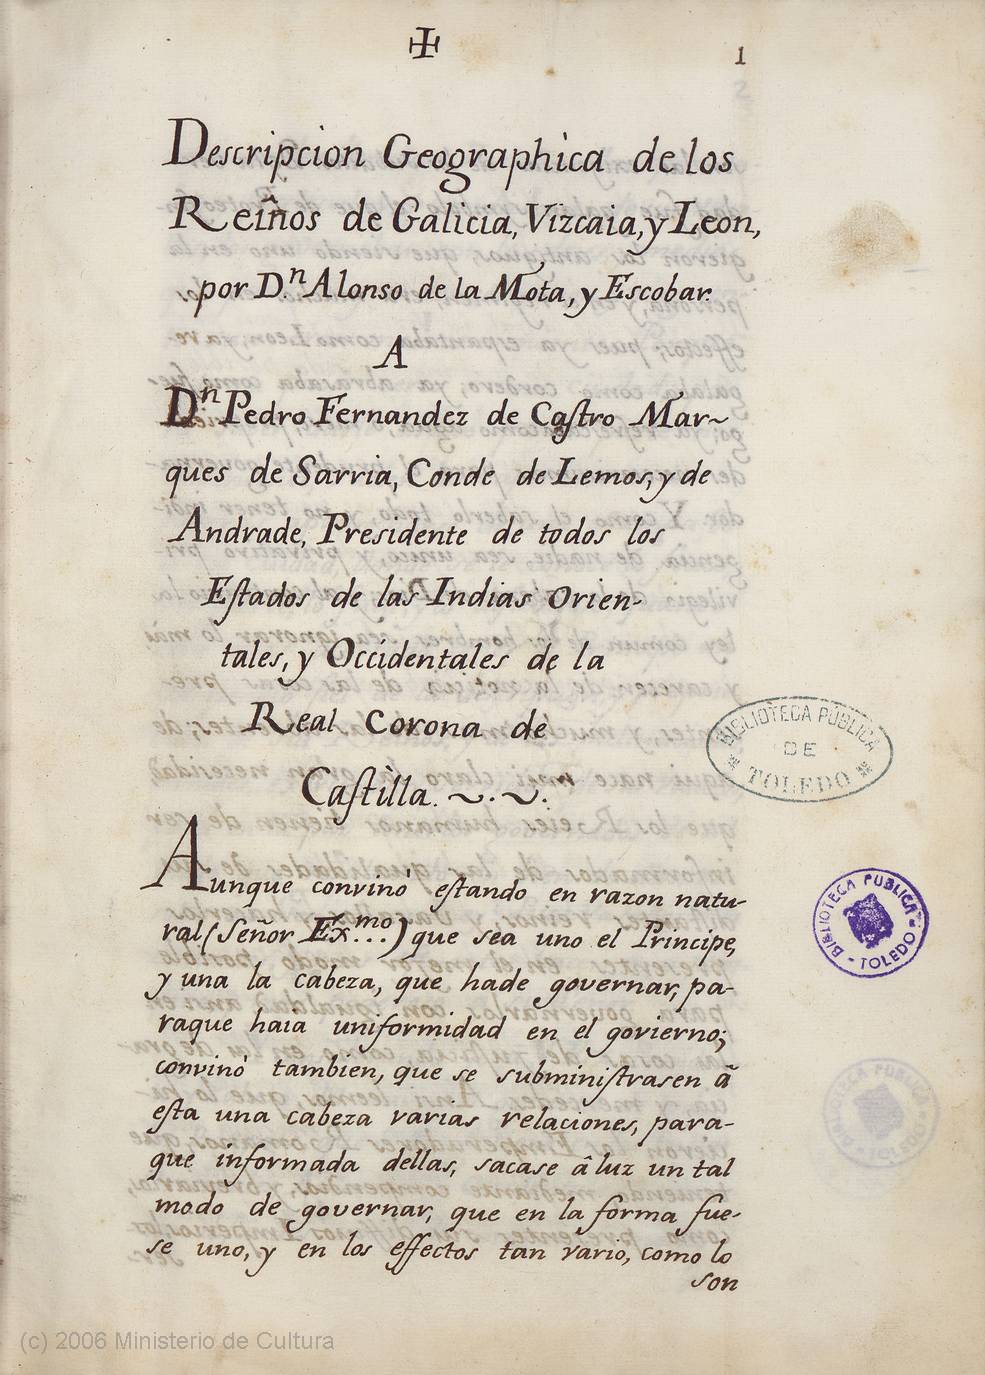 1
Descripcion Geographica de los
Reinos de Galicia, Vizcaia, y Leon,
por D.n Alonso de la Mota, y Escobar.
A
Dn Pedro Fernandez de Castro Mar~
ques de Sarria, Conde de Lemos, y de
Andrade, Presidente de todos los
Estados de las Indias Orien-
tales, y Occidentales de la
Real Corona de
Castilla. ~.~.
Aunque convinò estando en razon natu-
ral (Señor Exmo...) que sea uno el Principe,
y una la cabeza, que hade governar, pa-
raque haia uniformidad en el govierno;
convinò tambien, que se subministrasen â
esta una cabeza varias relaciones, para-
que informada dellas, sacase â luz un tal
modo de governar, que en la forma fue-
se uno, y en los effectos tan vario, como lo
son
BIBLIOTECA PÚBLICA
DE
TOLEDO
BIBLIOTECA PUBLICA
- TOLEDO -
BIBLIOTECA PUBLICA
- TOLEDO -
(c) 2006 Ministerio de Cultura